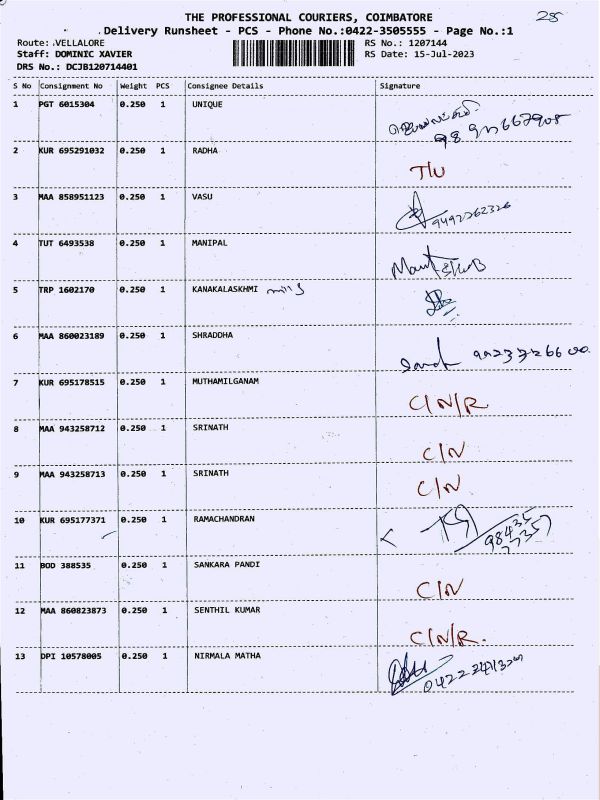 THE PROFESSIONAL COURIERS, COIMBATORE 28
Delivery Runsheet - PCS - Phone No.:0422-3505555 - Page No.:1
Route: VELLALORE RS No.: 1207144
Staff: DOMINIC XAVIER RS Date: 15-Jul-2023
DRS No.: DCJB120714401
S No Consignment No Weight PCS Consignee Details Signature
1 PGT 6015304 0.250 1 UNIQUE
2 KUR 695291032 0.250 1 RADHA T/U
3 MAA 858951123 0.250 1 VASU
4 TUT 6493538 0.250 1 MANIPAL
5 TRP 1602170 0.250 1 KANAKALASKHMI mills
6 MAA 860023189 0.250 1 SHRADDHA
7 KUR 695178515 0.250 1 MUTHAMILGANAM C/N/R
8 MAA 943258712 0.250 1 SRINATH C/N
9 MAA 943258713 0.250 1 SRINATH C/N
10 KUR 695177371 0.250 1 RAMACHANDRAN 98435
77357
11 BOD 388535 0.250 1 SANKARA PANDI C/N
12 MAA 860823873 0.250 1 SENTHIL KUMAR C/N/R.
13 DPI 10578005 0.250 1 NIRMALA MATHA